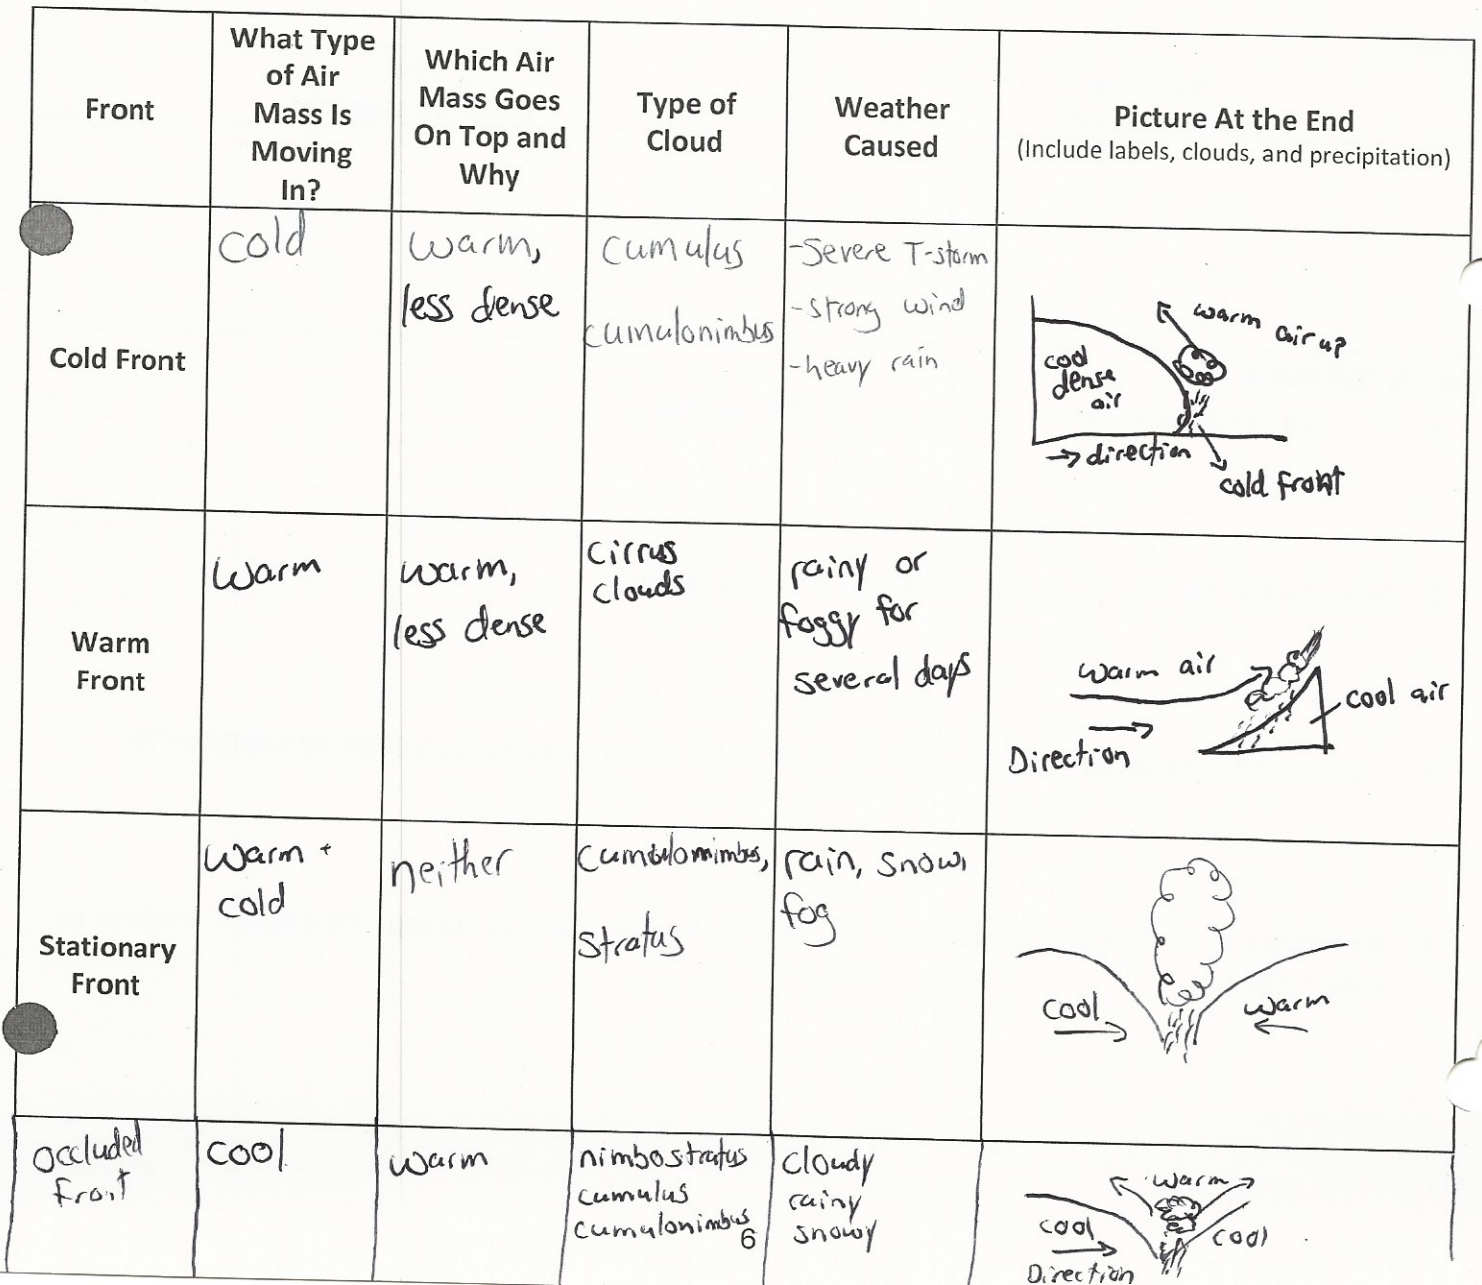 Front
What Type
of Air
Mass Is
Moving
In?
Which Air
Mass Goes
On Top and
Why
Type of
Cloud
Weather
Caused
Picture At the End
(Include labels, clouds, and precipitation)
Cold Front
cold
warm,
less dense
cumulus
cumulonimbus
-Severe T-storm
-strong wind
-heavy rain
warm air up
cool
dense
air
→ direction
cold front
Warm
Front
warm
warm,
less dense
cirrus
clouds
rainy or
foggy for
several days
warm air
cool air
Direction
Stationary
Front
warm +
cold
neither
cumulonimbus,
stratus
rain, snow,
fog
cool
warm
occluded
front
cool
warm
nimbostratus
cumulus
cumulonimbus
6
cloudy
rainy
snowy
warm
cool
cool
Direction